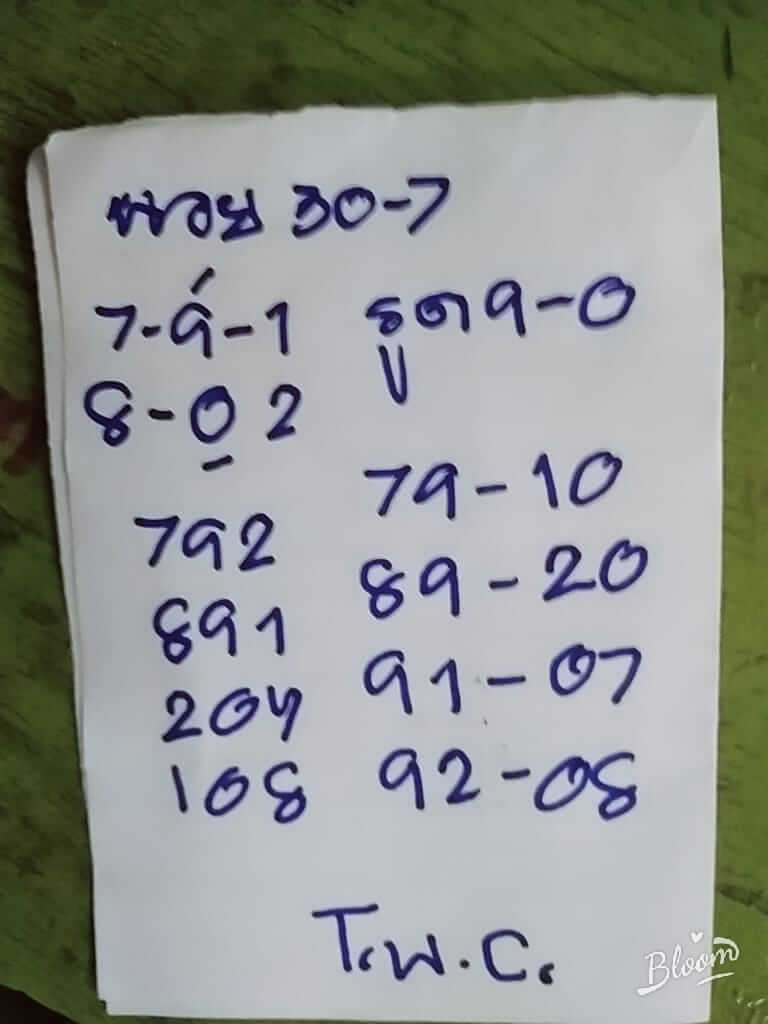 30-7
7-9-1 รูด 9-0
8-0 2
79-10
792
89-20
891
91-07
207
92-08
108
T.พ.C.
Bloom